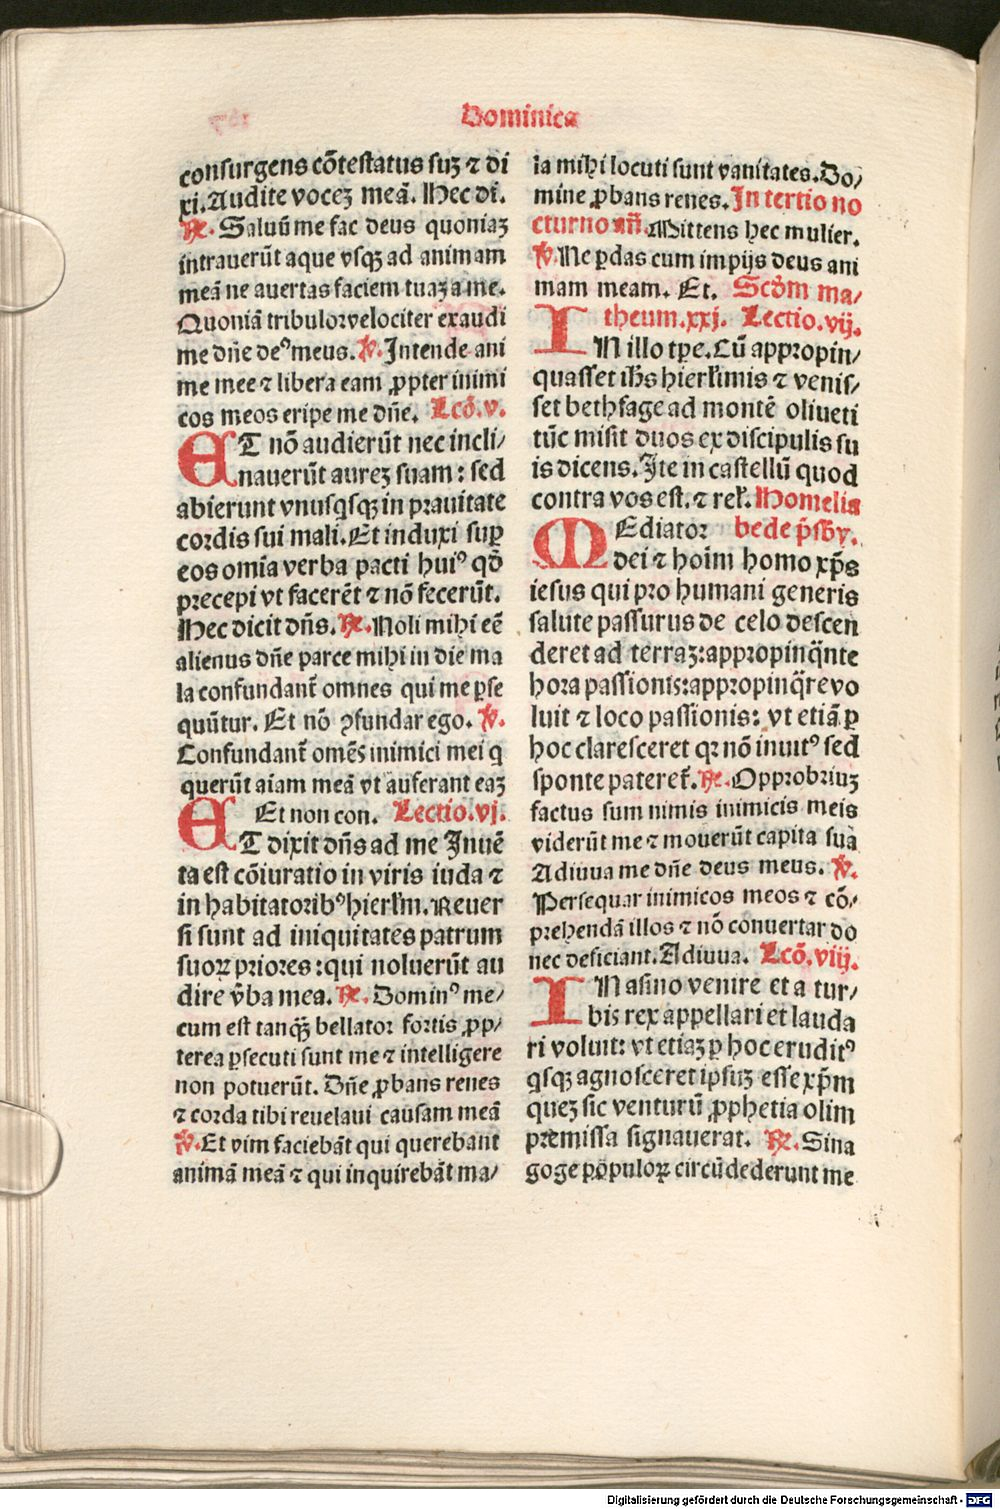 Dominica
consurgens cōtestatus suꝫ ⁊ di
xi. Audite voceꝫ meā. Hec di.
℞. Saluū me fac deus quoniaꝫ
intrauerūt aque vsqꝫ ad animam
meā ne auertas faciem tuaꝫ a me.
Quoniā tribuloꝛ velociter exaudi
me dn̄e deꝰ meus. ℣. Intende ani
me mee ⁊ libera eam ꝓpter inimi
cos meos eripe me dn̄e. Lcō. v.
ET nō audierūt nec incli/
nauerūt aureꝫ suam: sed
abierunt vnusqsqꝫ in prauitate
cordis sui mali. Et induxi suꝑ
eos om̄ia verba pacti huiꝰ qd̄
precepi vt facerēt ⁊ nō fecerūt.
Hec dicit dn̄s. ℞. Noli mihi eē
alienus dn̄e parce mihi in die ma
la confundant̄ omnes qui me ꝑse
quūtur. Et nō ꝯfundar ego. ℣.
Confundant̄ omēs inimici mei q
querūt aīam meā vt auferant eaꝫ
Et non con. Lectio. vj.
ET dixit dn̄s ad me Inuē
ta est cōiuratio in viris iuda ⁊
in habitatoribꝰ hierl̄m. Reuer
si sunt ad iniquitates patrum
suoꝝ priores: qui noluerūt au
dire v̄ba mea. ℞. Dominꝰ me/
cum est tanqꝫ̄ bellator fortis ꝓp/
terea ꝑsecuti sunt me ⁊ intelligere
non potuerūt. Dn̄e ꝓbans renes
⁊ corda tibi reuelaui causam meā
℣. Et vim faciebāt qui querebant
animā meā ⁊ qui inquirebāt ma/
la mihi locuti sunt vanitates. Do/
mine ꝓbans renes. In tertio no
cturno an̄. Mittens hec mulier.
℣. Ne ꝑdas cum impijs deus ani
mam meam. Et. Scd̄m ma/
theum. xxj. Lectio. vij.
IN illo tp̄e. Cū appropin/
quasset ih̄s hierl̄imis ⁊ venis/
set bethfage ad montē oliueti
tūc misit duos ex discipulis su
is dicens. Ite in castellū quod
contra vos est. ⁊ rel̄. Homelia
MEdiator bede p̄sb̄y.
dei ⁊ hoīm homo xp̄s
iesus qui pro humani generis
salute passurus de celo descen
deret ad terraꝫ: appropinq̄nte
hora passionis: appropinq̄re vo
luit ⁊ loco passionis: vt etiā ꝑ
hoc claresceret qꝛ nō inuitꝰ sed
sponte pateret̄. ℞. Opprobriuꝫ
factus sum nimis inimicis meis
viderūt me ⁊ mouerūt capita sua
Adiuua me dn̄e deus meus. ℣.
Persequar inimicos meos ⁊ cō/
prehendā illos ⁊ nō conuertar do
nec deficiant. Adiuua. Lcō. viij.
IN asino venire et a tur/
bis rex appellari et lauda
ri voluit: vt etiaꝫ ꝑ hoc eruditꝰ
qsqꝫ agnosceret ipsuꝫ esse xp̄m
queꝫ sic venturū ꝓphetia olim
premissa signauerat. ℞. Sina
goge p̄opuloꝝ circūdederunt me
Digitalisierung gefördert durch die Deutsche Forschungsgemeinschaft - DFG